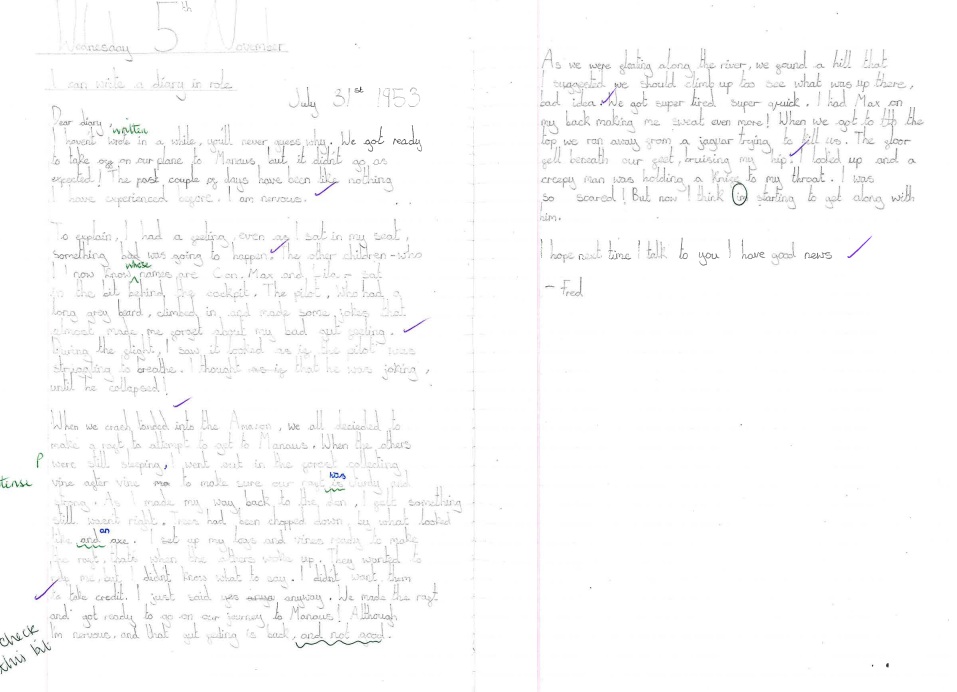 Wednesday 5th November
I can write a diary in role
July 31st 1953
Dear diary,
written
I havent wrote in a while, you'll never guess why. We got ready
to take off on our plane to Manaus, but it didn't go as
expected! The past couple of days have been like nothing
I have experienced before. I am nervous.
To explain, I had a feeling, even as I sat in my seat,
something bad was going to happen. The other children-who
whose
I now know names are Con, Max and Lila- sat
in the bit behind the cockpit. The pilot, who had a
long grey beard, climbed in and made some jokes that
almost made me forget about my bad gut feeling.
During the flight, I saw it looked as if the pilot was
struggling to breathe. I thought as if that he was joking,
until he collapsed!
When we crash landed into the Amazon, we all decieded to
make a raft to attempt to get to Manaus. When the others
P were still sleeping, I went out in the forest collecting
was
tense vine after vine to make sure our raft is sturdy and
strong. As I made my way back to the den, I felt something
still wasnt right. Trees had been chopped down by what looked
an
like and axe. I set up my logs and vines ready to make
the raft, thats when the others woke up. They wanted to
help me, but I didnt know what to say. I didnt want them
to take credit. I just said yes anyway. We made the raft
and got ready to go on our journey to Manaus! Although
check I'm nervous, and that gut feeling is back, and not good.
this bit
As we were floating along the river, we found a hill that
I suggested we should climb up too see what was up there,
bad idea. We got super tired super quick. I had Max on
my back making me sweat even more! When we got to the
top we ran away from a jaguar trying to kill us. The floor
fell beneath our feet, bruising my hip. I looked up and a
creepy man was holding a knife to my throat. I was
so scared! But now I think im starting to get along with
him.
I hope next time I talk to you I have good news
- Fred